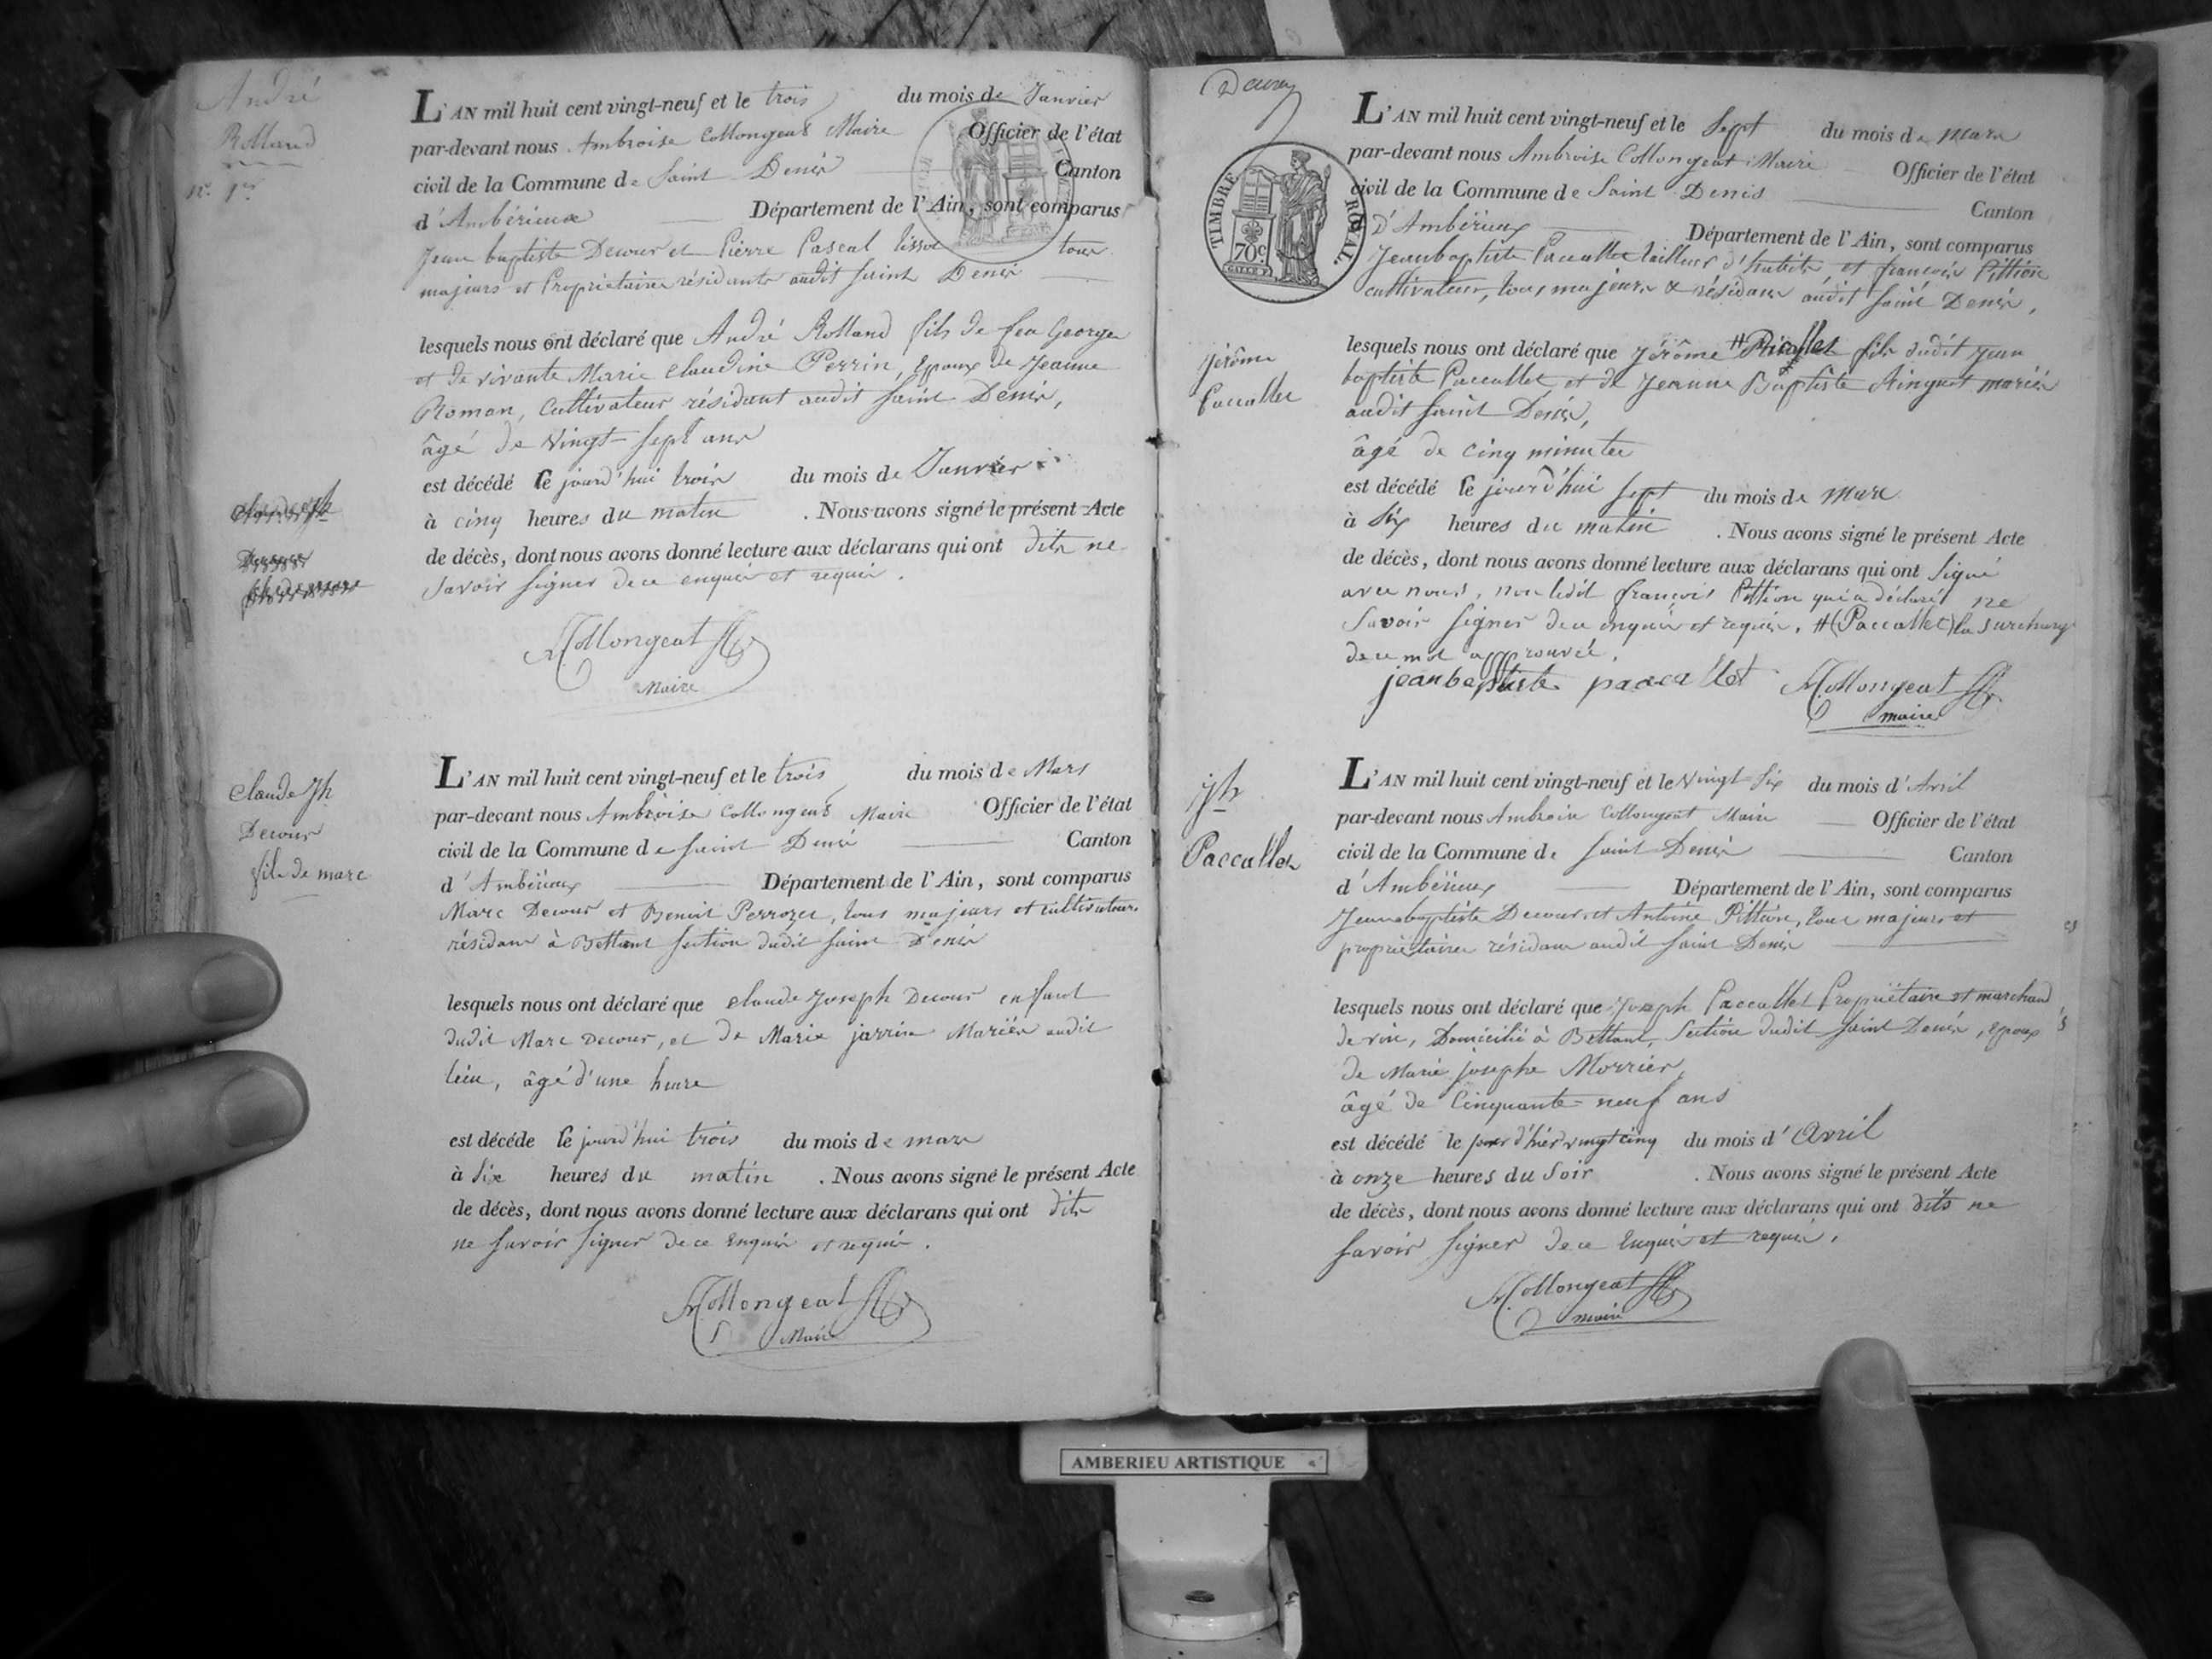 André
Rolland
n.o 1er
L'AN mil huit cent vingt-neuf et le trois du mois de Janvier
par-devant nous Ambroise Collongeat Maire Officier de l'état
civil de la Commune de Saint Denis Canton
d'Ambérieux Département de l'Ain, sont comparus
Jean baptiste Decour et Pierre Pascal tous
majeurs et Propriétaires résidants audit Saint Denis
lesquels nous ont déclaré que André Rolland fils de feu George
et de vivante Marie Claudine Perrin, Epoux de Jeanne
Roman, Cultivateur résidant audit Saint Denis,
âgé de vingt-sept ans
est décédé le jourd'hui trois du mois de Janvier
à cinq heures du matin . Nous avons signé le présent Acte
de décès, dont nous avons donné lecture aux déclarans qui ont dits ne
Savoir signer de ce enquis et requis.
Collongeat
Maire
Claude Jh
Decour
fils de marc
L'AN mil huit cent vingt-neuf et le trois du mois de Mars
par-devant nous Ambroise Collongeat Maire Officier de l'état
civil de la Commune de Saint Denis Canton
d'Ambérieux Département de l'Ain, sont comparus
Marc Decour et Benoit Perrozet, tous majeurs et cultivateurs
résidans à Bettant Section dudit Saint Denis
lesquels nous ont déclaré que Claude Joseph Decour enfant
dudit Marc Decour, et de Marie jarrin Mariés audit
lieu, âgé d'une heure
est décéde le jourd'hui trois du mois de mars
à six heures du matin . Nous avons signé le présent Acte
de décès, dont nous avons donné lecture aux déclarans qui ont dits
ne savoir signer de ce Enquis et requis.
Collongeat
Maire
TIMBRE ROYAL
70c.
L'AN mil huit cent vingt-neuf et le Sept du mois de mars
par-devant nous Ambroise Collongeat Maire Officier de l'état
civil de la Commune de Saint Denis Canton
D'Ambérieux Département de l'Ain, sont comparus
Jeanbaptiste Paccallet tailleur d'habits, et françois Pittion
cultivateur, tous majeurs & résidans audit Saint Denis,
Jérôme
Paccallet
lesquels nous ont déclaré que Jérôme # fils dudit Jean
baptiste Paccallet et de Jeanne Baptiste Ainguet mariés
audit Saint Denis,
âgé de cinq minutes
est décédé le jourd'hui sept du mois de mars
à six heures du matin . Nous avons signé le présent Acte
de décès, dont nous avons donné lecture aux déclarans qui ont signé
avec nous, non ledit françois Pittion qui a déclaré ne
Savoir signer de ce enquis et requis. #(Paccallet) la surcharge
de ce mot approuvée.
jeanbaptiste paccallet Collongeat
maire
Jh
Paccallet
L'AN mil huit cent vingt-neuf et le vingt-six du mois d'Avril
par-devant nous Ambroise Collongeat Maire Officier de l'état
civil de la Commune de Saint Denis Canton
d'Ambérieux Département de l'Ain, sont comparus
Jeanbaptiste Decour et Antoine Pittion, tous majeurs et
propriétaires résidans audit Saint Denis
lesquels nous ont déclaré que Joseph Paccallet Propriétaire et marchand
de vin, Domicilié à Bettant, Section dudit Saint Denis, Epoux
de Marie josephe Morrier,
âgé de Cinquante-neuf ans
est décédé le jour d'hier vingt cinq du mois d'Avril
à onze heures du Soir . Nous avons signé le présent Acte
de décès, dont nous avons donné lecture aux déclarans qui ont dits ne
Savoir signer de ce Enquis et requis.
Collongeat
maire
AMBERIEU ARTISTIQUE